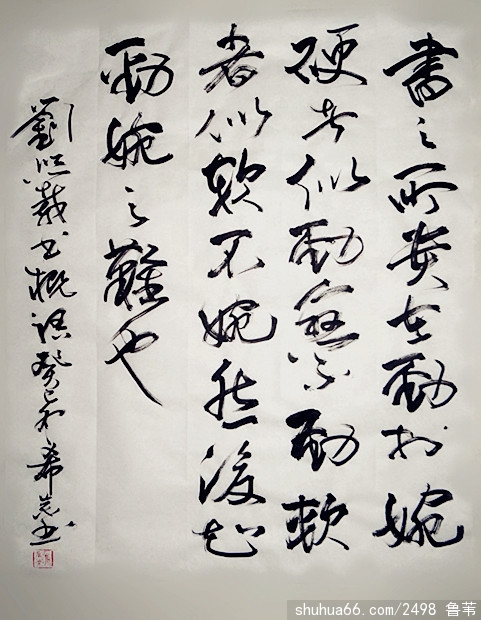 書之所貴在勁於婉
硬者似勁不勁軟
者似軟不婉然後知
勁婉之難也
劉熙載書概語癸巳希書
shuhua66.com/2498 鲁苇